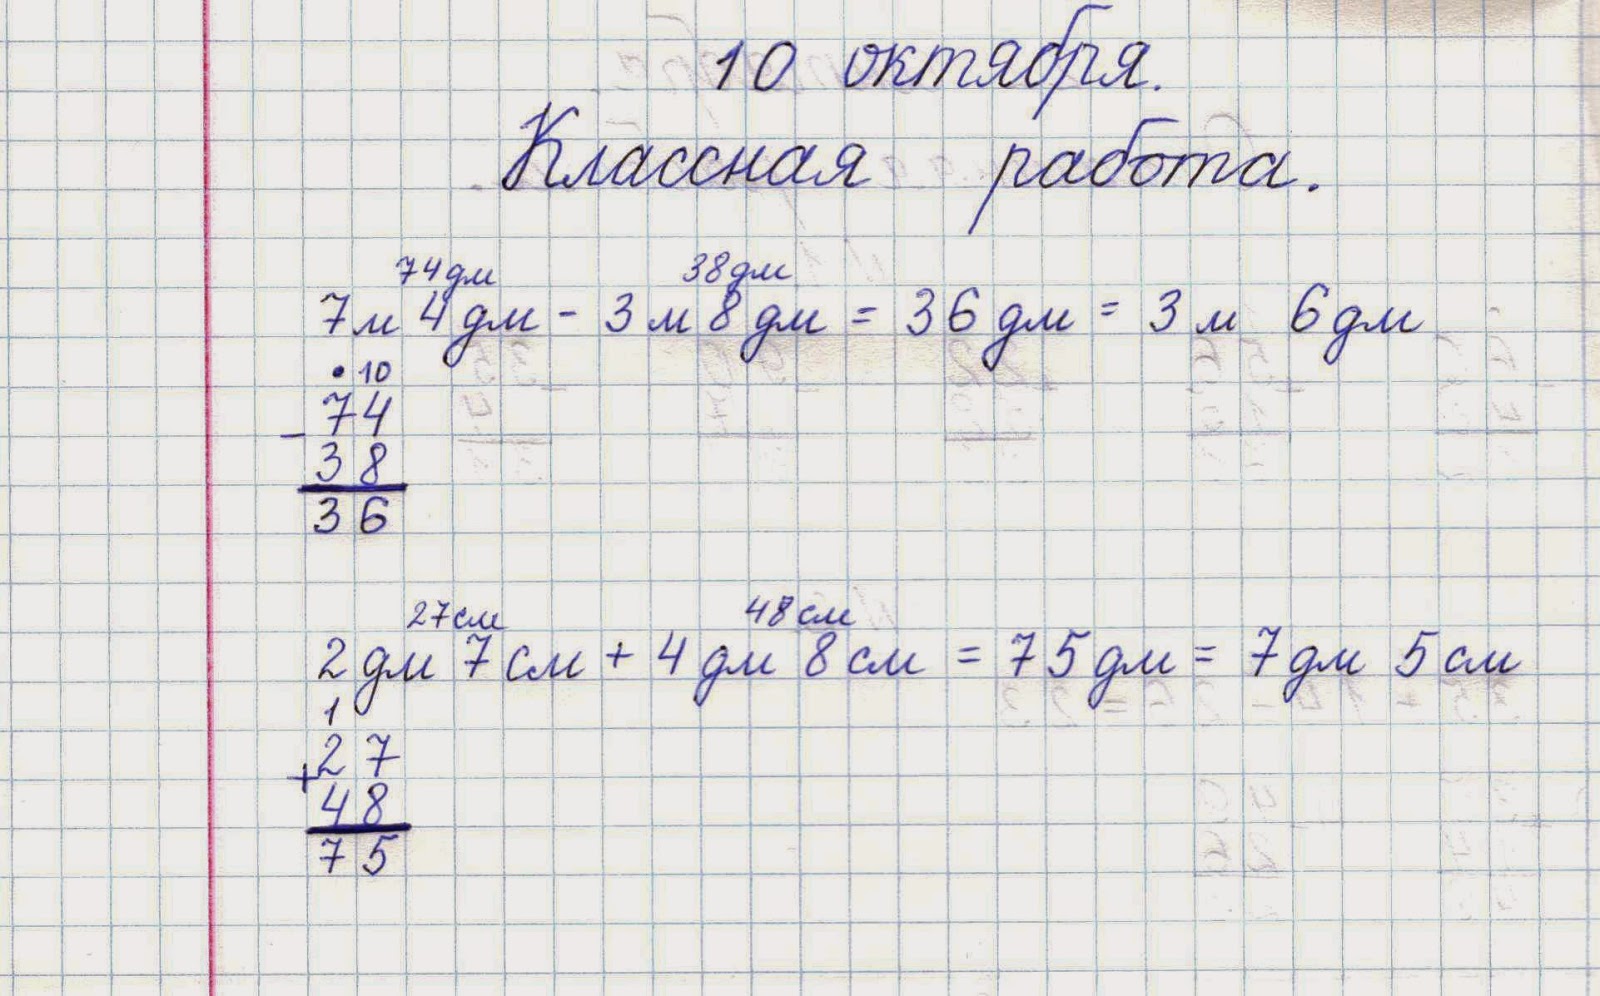 10 октября.
Классная работа.
74дм 38дм
7м 4дм - 3м 8дм = 36дм = 3м 6дм
• 10
74
-
38
36
27см 48см
2дм 7см + 4дм 8см = 75дм = 7дм 5см
1
27
+
48
75